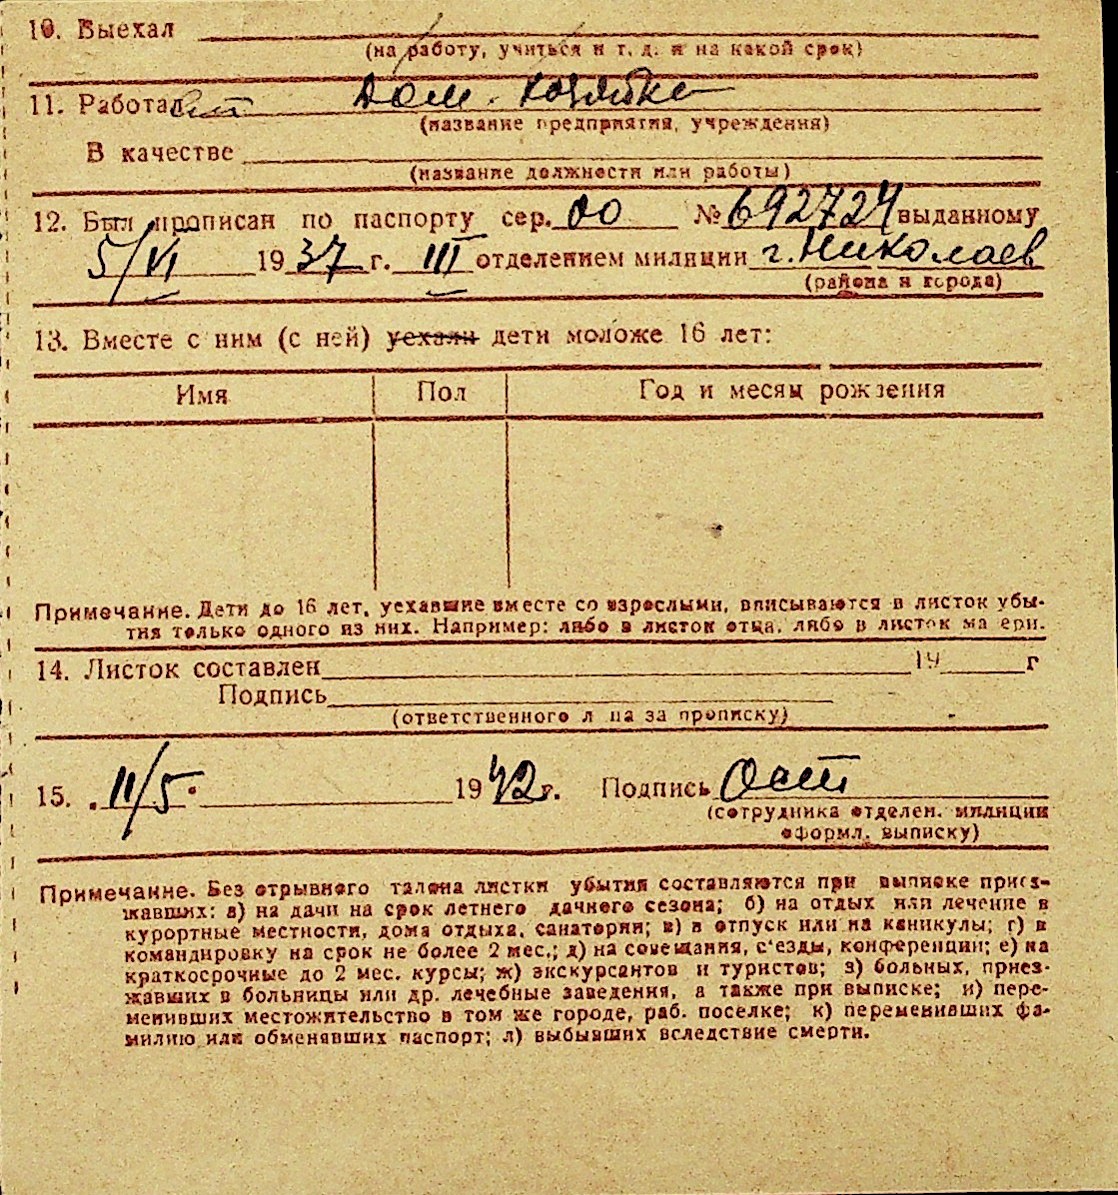 10. Выехал
(на работу, учиться и т. д. и на какой срок)
11. Работал Дом. хозяйка
(название предприятия, учреждения)
В качестве
(название должности или работы)
12. Был прописан по паспорту сер. 00 № 692724 выданному
5/VI 1937 г. III отделением милиции г. Николаев
(района и города)
13. Вместе с ним (с ней) уехали дети моложе 16 лет:
Имя Пол Год и месяц рождения
Примечание. Дети до 16 лет, уехавшие вместе со взрослыми, вписываются в листок убы-
тия только одного из них. Например: либо в листок отца, либо в листок ма ери.
14. Листок составлен 19 г
Подпись
(ответственного л ца за прописку)
15. 11/5 1942 г. Подпись
(сотрудника отделен. милиции
оформл. выписку)
Примечание. Без отрывного талона листки убытия составляются при выписке приез-
жавших: а) на дачи на срок летнего дачного сезона; б) на отдых или лечение в
курортные местности, дома отдыха, санатории; в) в отпуск или на каникулы; г) в
командировку на срок не более 2 мес.; д) на совещания, с'езды, конференции; е) на
краткосрочные до 2 мес. курсы; ж) экскурсантов и туристов; з) больных, приез-
жавших в больницы или др. лечебные заведения, а также при выписке; и) пере-
менивших местожительство в том же городе, раб. поселке; к) переменивших фа-
милию или обменявших паспорт; л) выбывших вследствие смерти.